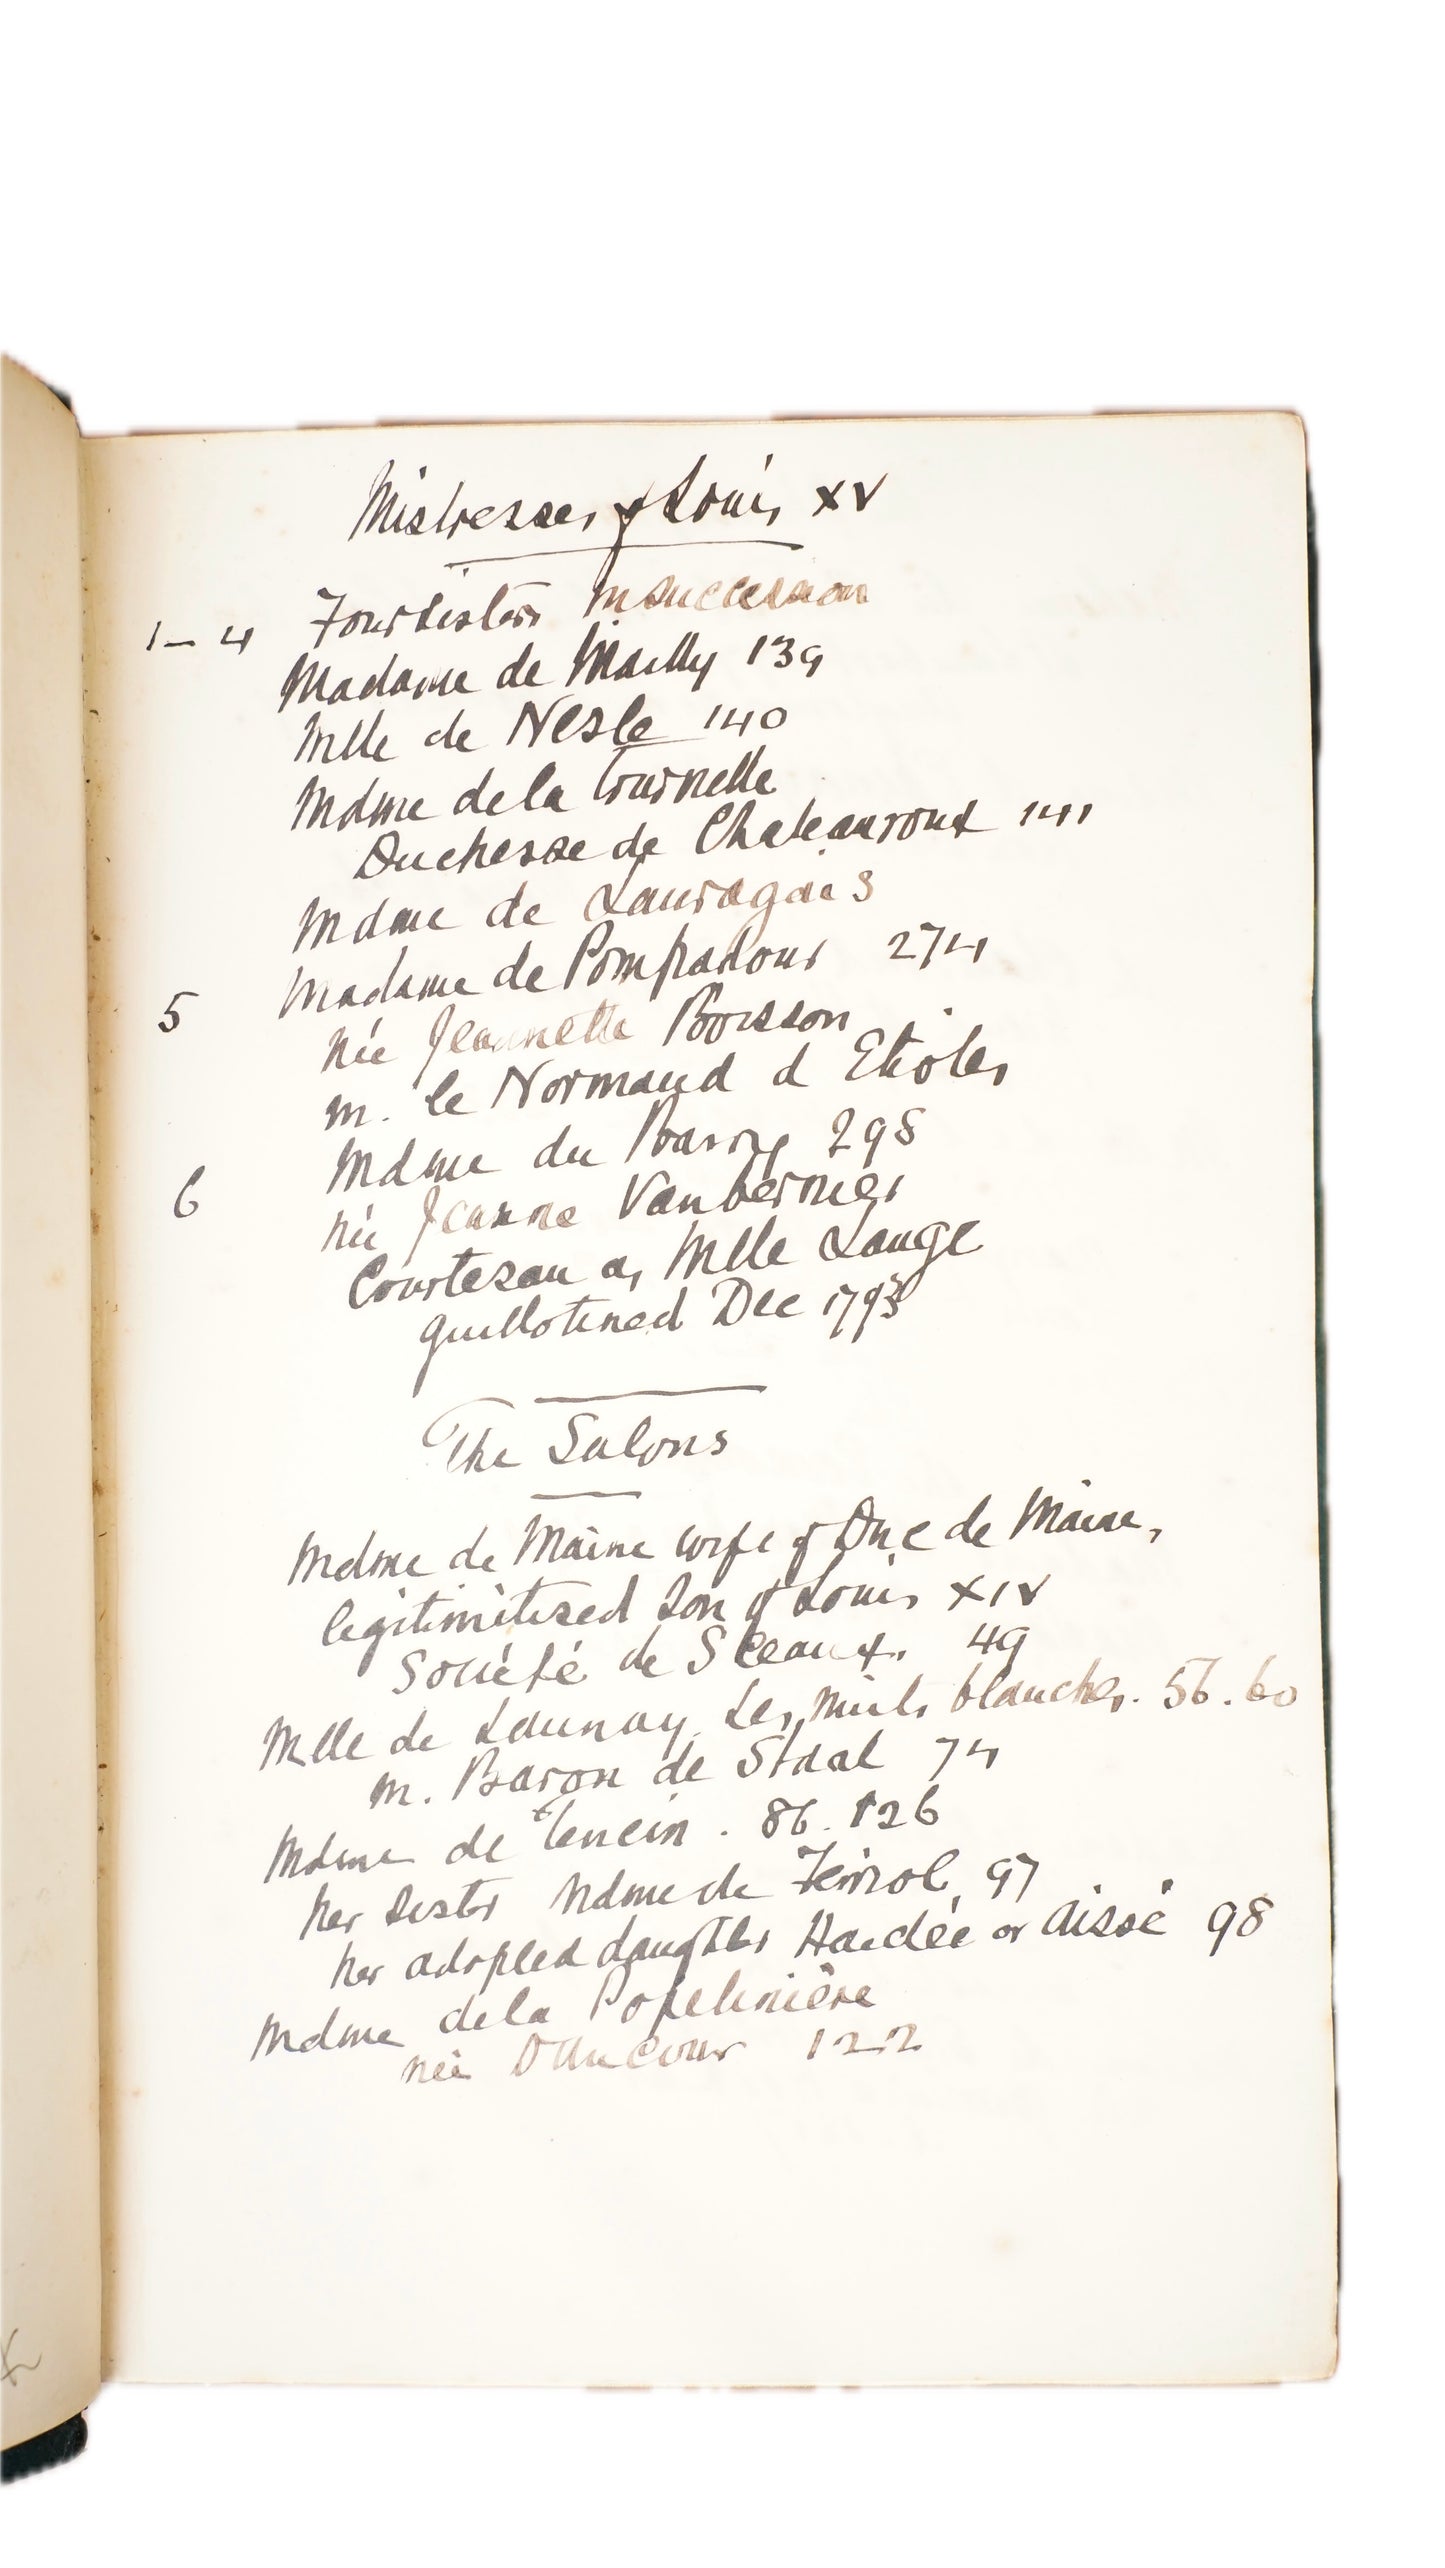 Mistresses of Louis XV
1–4 Four Sisters in succession
Madame de Mailly 139
Mlle de Nesle 140
Mdme de la Tournelle
Duchesse de Chateauroux 141
Mdme de Lauragais
5 Madame de Pompadour 274
née Jeannette Poisson
m. le Normand d Etioles
6 Mdme du Barry 298
née Jeanne Vaubernier
Courtesan as Mlle Lange
guillotined Dec 1793
The Salons
Mdme de Maine wife of Duc de Maine,
legitimitised son of Louis XIV
Société de Sceaux. 49
Mlle de Launay. Les nuits blanches. 56.60
m. Baron de Staal 74
Mdme de Tencin. 86. 126
her sister Mdme de Ferriol 97
her adopted daughter Haidée or Aissé 98
Mdme de la Popelinière
née Dancour 122